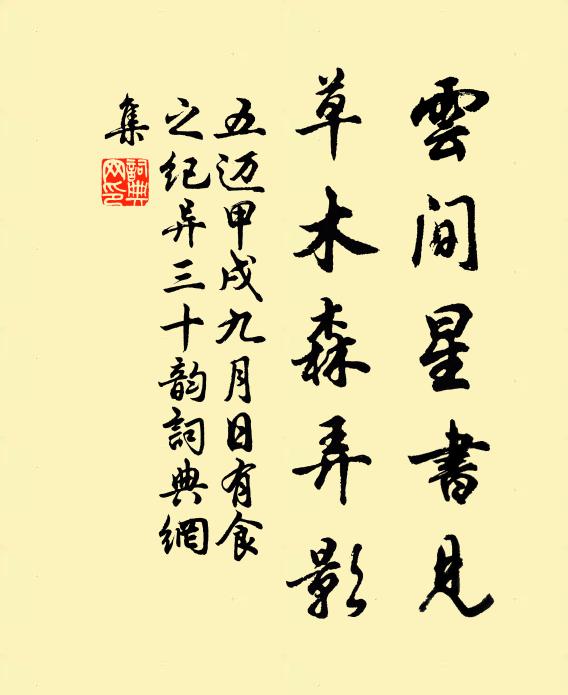 雲間星書見
草木森弄影
五迈甲戌九月日有食
之纪异三十韵詞典網
集
詞典網印